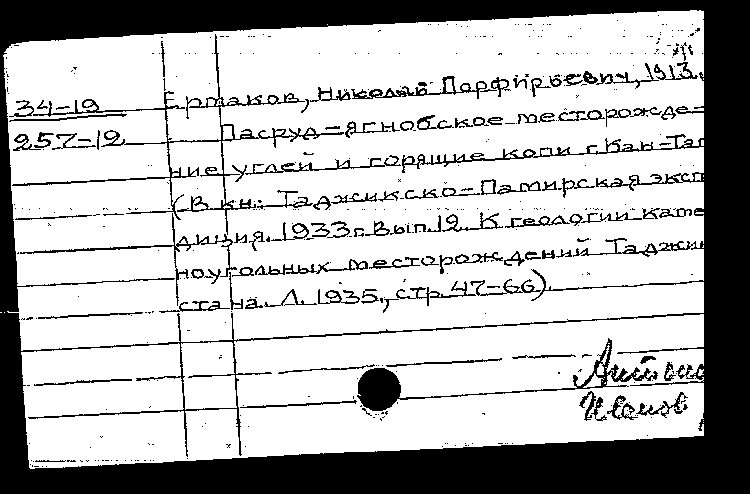 XIII
34-19 Ермаков, Николай Порфирьевич, 1913.
257-12 Пасруд-ягнобское месторожде-
ние углей и горящие копи г. Кан-Таг
(В кн.: Таджикско-Памирская экспе
диция. 1933 г. Вып. 12. К геологии каме
ноугольных месторождений Таджики
стана. Л. 1935., стр. 47-66).
Иванов